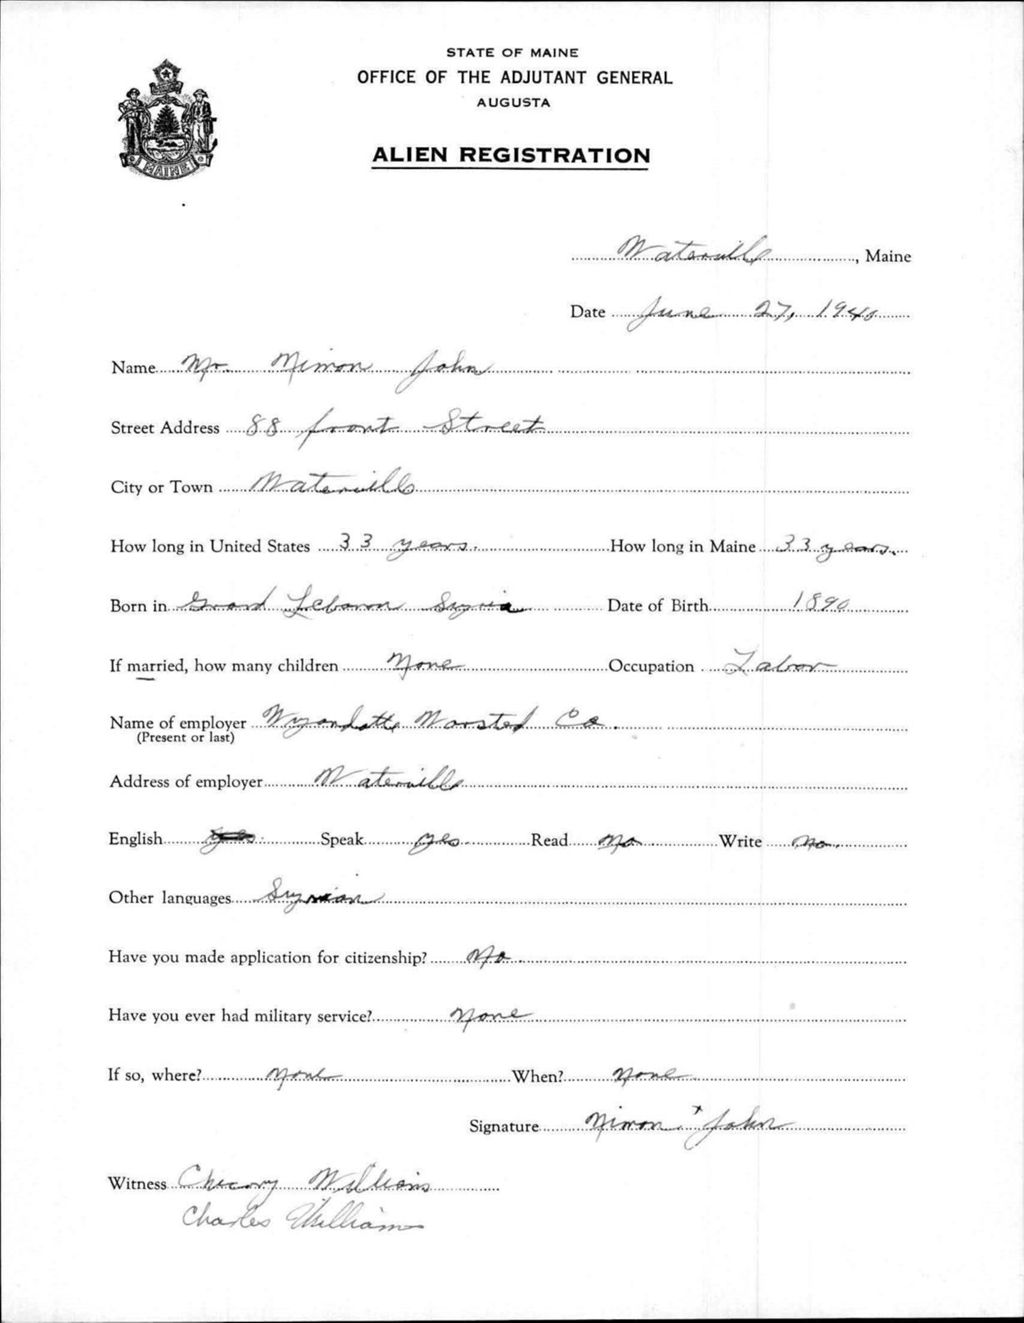 STATE OF MAINE
OFFICE OF THE ADJUTANT GENERAL
AUGUSTA
ALIEN REGISTRATION
MAINE
Waterville, Maine
Date June 27, 1940
Name Mr. Nimon John
Street Address 88 front Street
City or Town Waterville
How long in United States 33 years. How long in Maine 33 years.
Born in Lebanon Syria Date of Birth 1890
If married, how many children None Occupation Labor
Name of employer Wyandotte Worsted Co.
(Present or last)
Address of employer Waterville
English yes Speak yes Read No Write No.
Other languages Syrian
Have you made application for citizenship? No.
Have you ever had military service? None
If so, where? None When? None
Signature Nimon x John
Witness Williams
Charles Williams